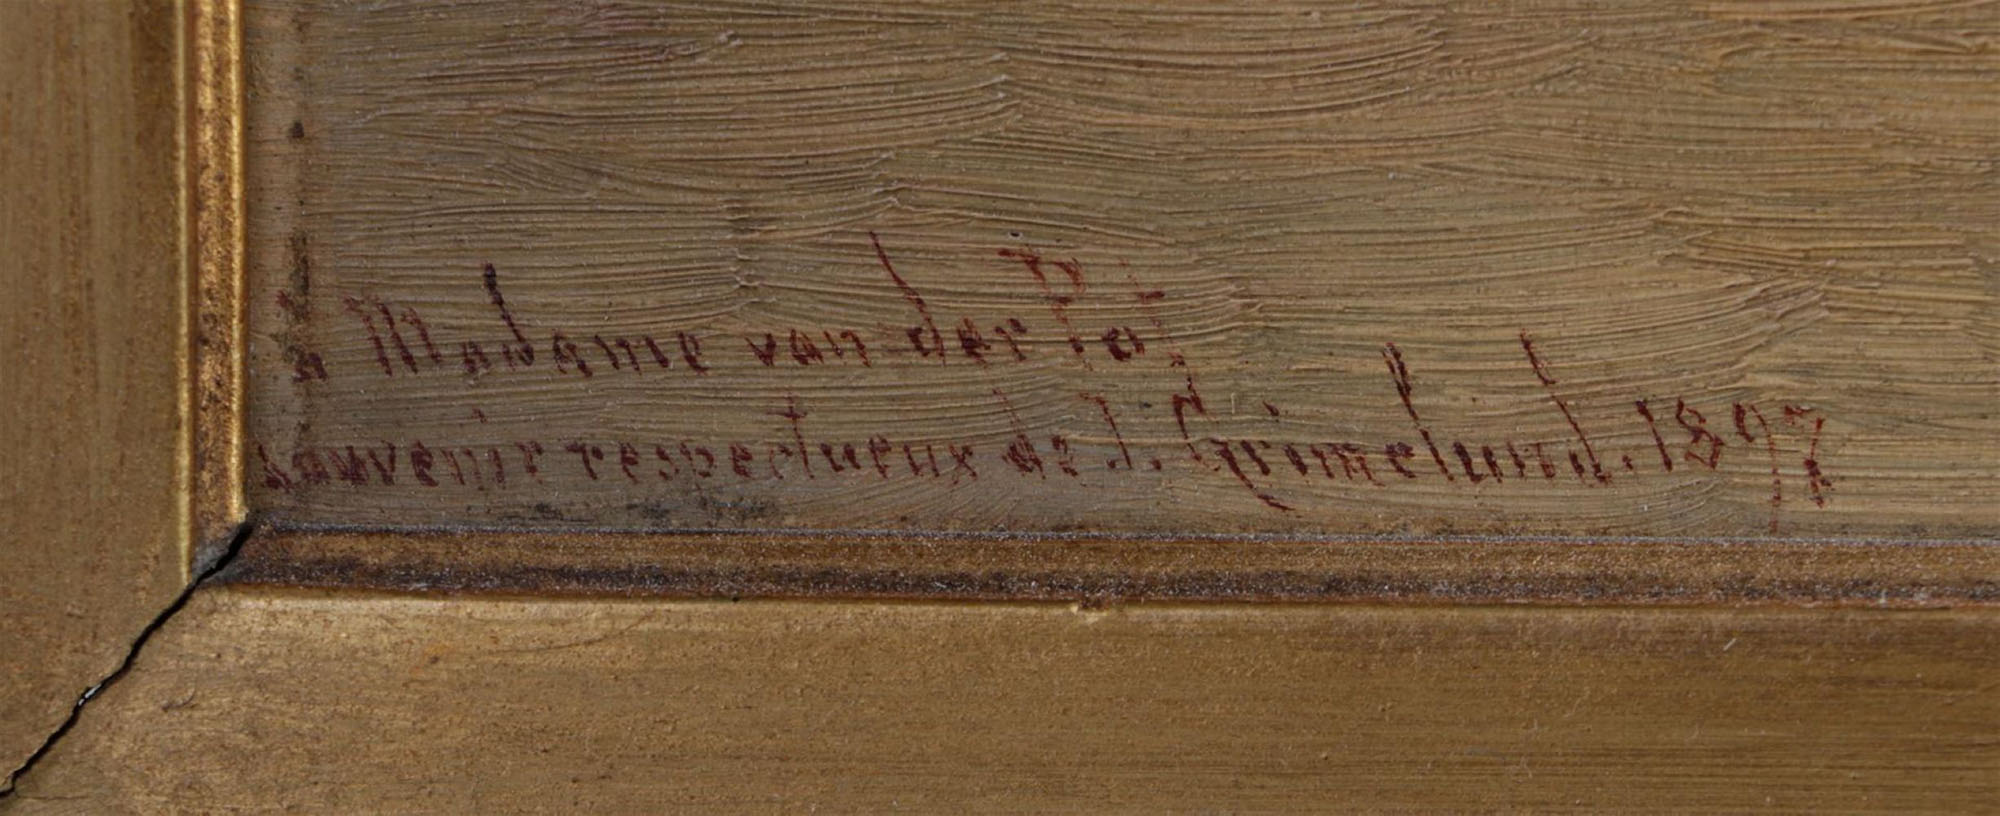 à Madame van der Pot
souvenir respectueux de J. Grimelund. 1897